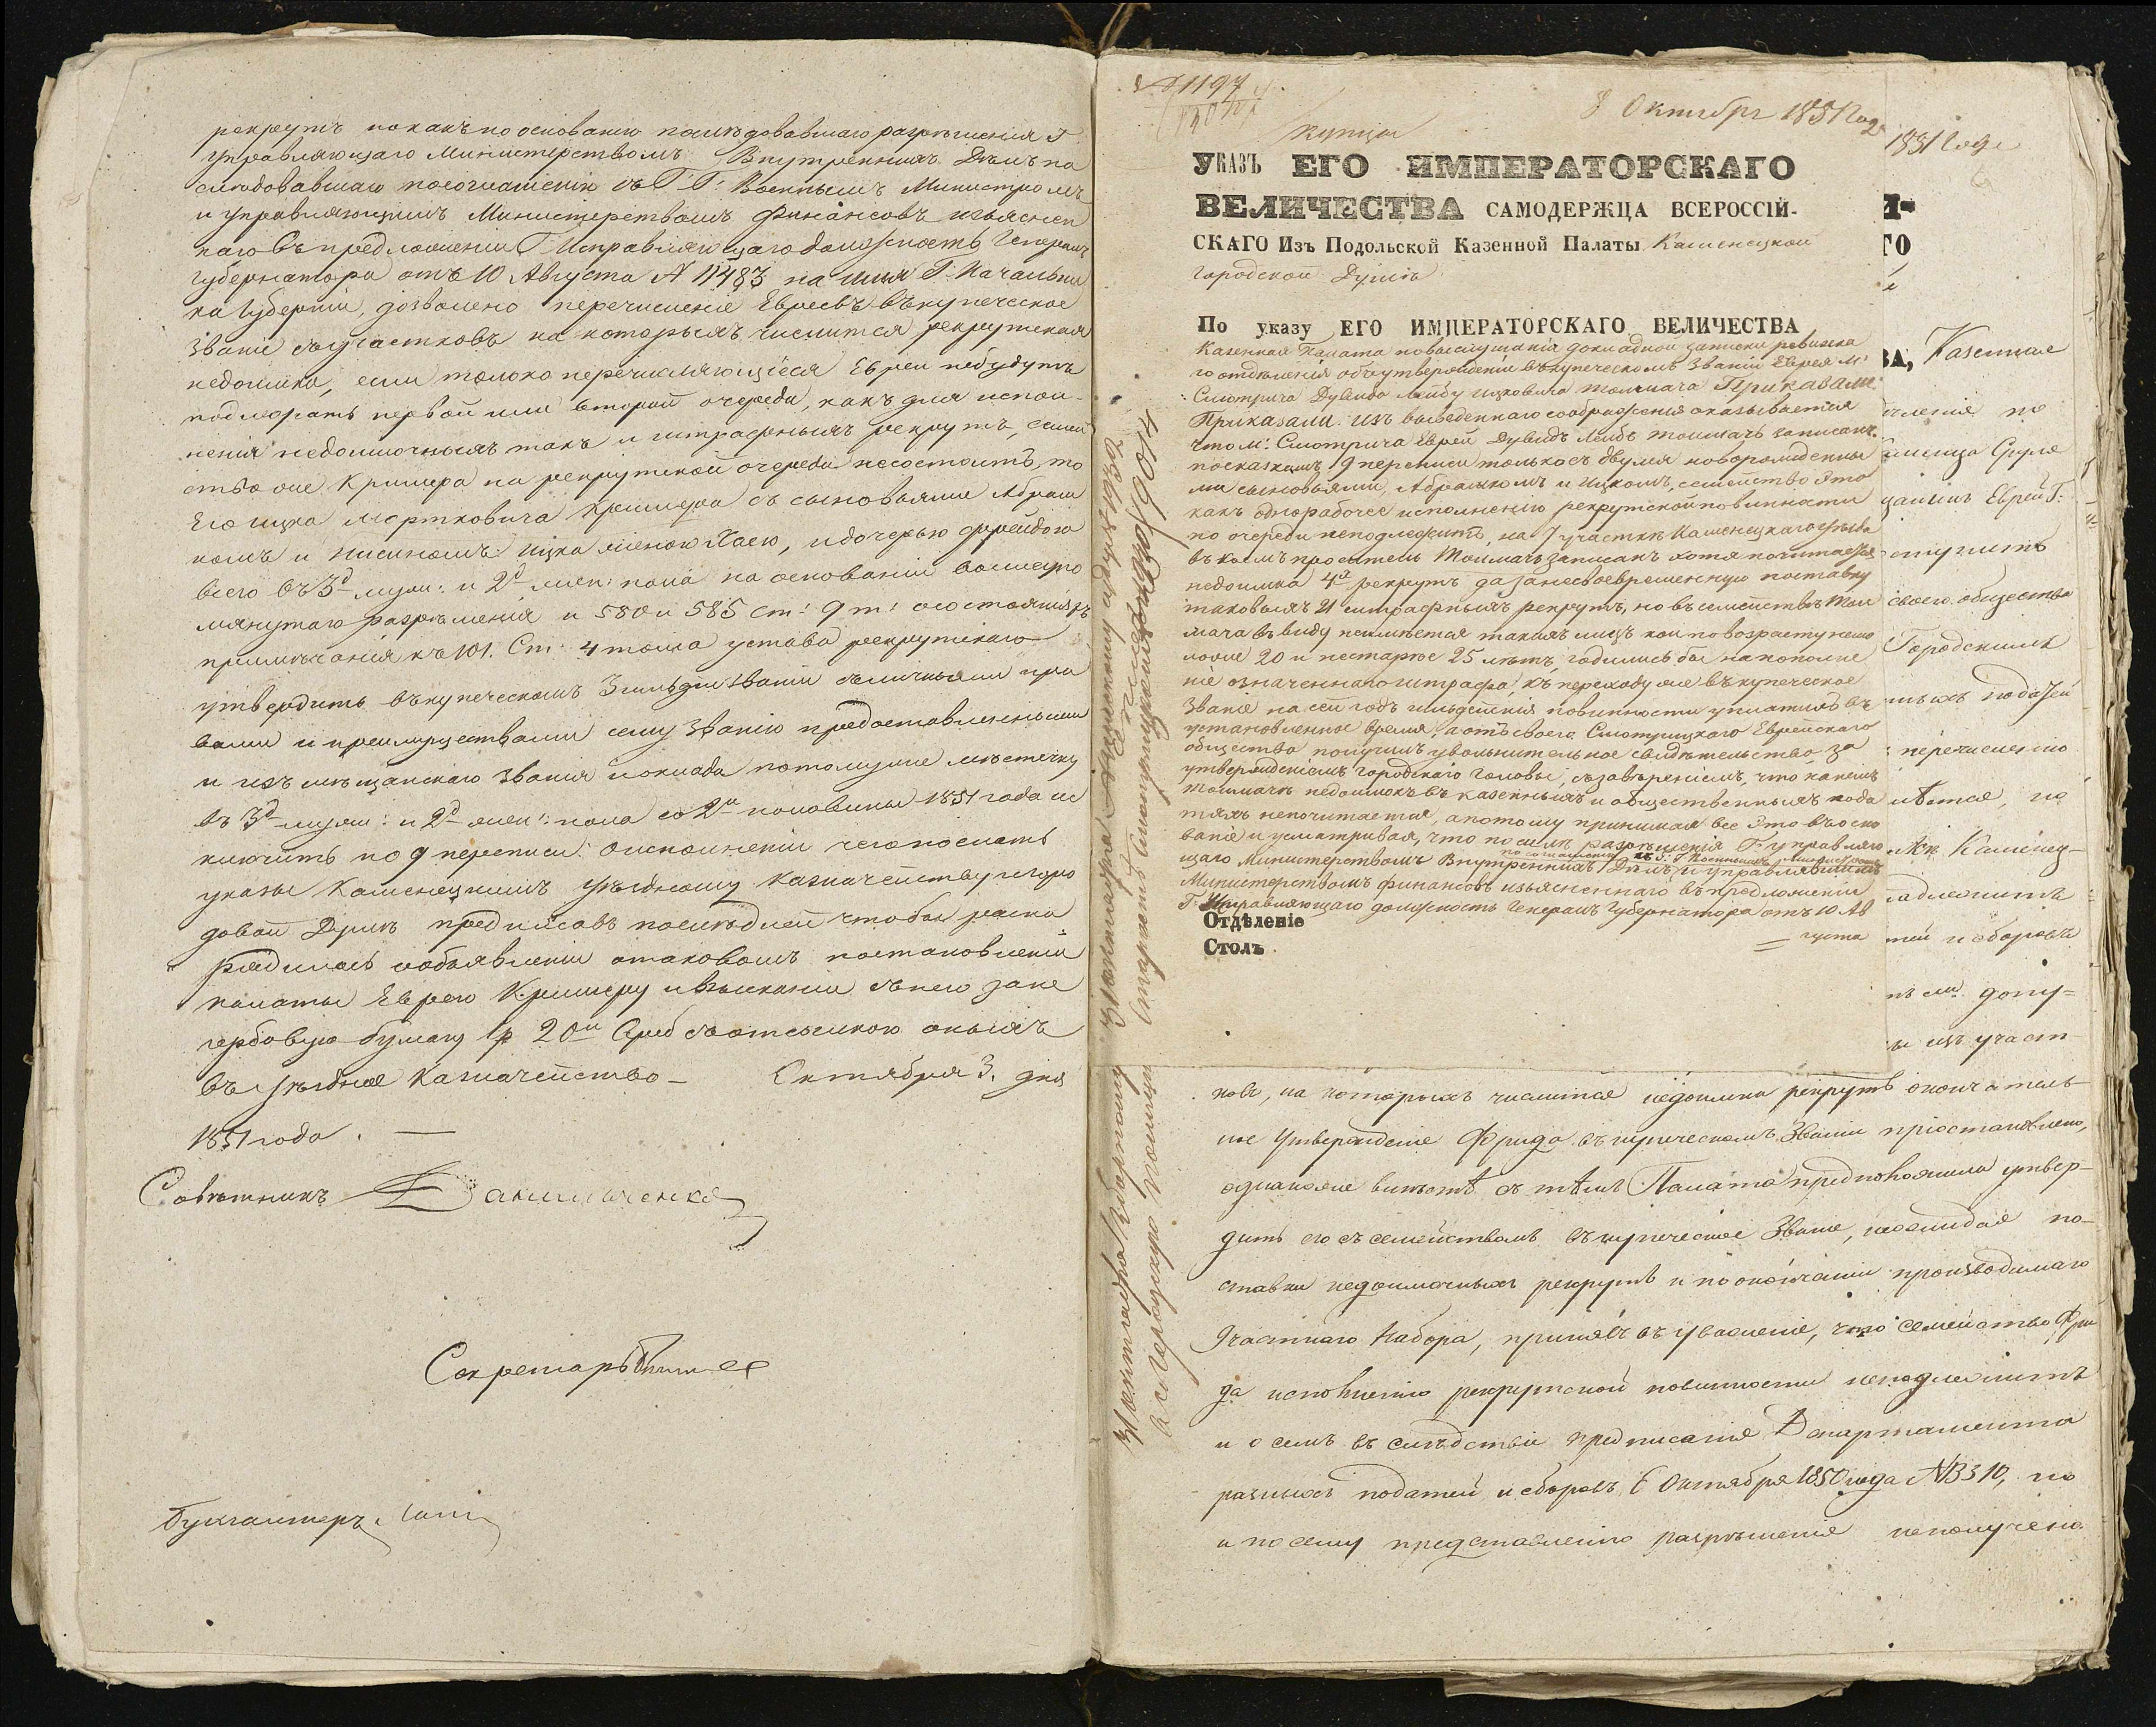 рекрутъ но какъ по основанію послѣдовавшаго разрѣшенія Г
управляющаго Министерствомъ Внутреннихъ Дѣлъ по
слѣдовавшаго по соглашенію съ Г: Г: Военнымъ Министромъ
и управляющимъ Министерствомъ Финансовъ изъяснен
наго въ предложеніи Г. Исправляющаго должность Генералъ
Губернатора отъ 10 Августа № 11483 на имя Г. Начальни
ка Губерніи, дозволено перечисленіе Евреевъ въ купеческое
званіе съ участковъ на которыхъ числится рекрутская
недоимка, если только перечисляющіеся Евреи небудутъ
подлежать первой или второй очереди, какъ для испол-
ненія недоимочныхъ такъ и штрафныхъ рекрутъ, семей
ство же Кримера на рекрутской очереди не состоитъ, то
Его Ицка Мортковича Кримера съ сыновьями Абрам
комъ и Нисиномъ Ицка женою Хаею, и дочерью Фрейдою
всего въ 3<sup>д</sup> муж: и 2<sup>д</sup> жен: пола на основаніи вышеупо
мянутаго разрѣшенія и 580 и 585 ст: 9 т: о состояніяхъ
примѣчанія къ 101. Ст: 4 тома устава рекрутскаго
утвердить въ купеческомъ 3 гильдіи званіи съ личными пра
вами и преимуществами сему званію предоставленными
и изъ мѣщанскаго званія и оклада по томуже мѣстечку
въ 3<sup>д</sup> муж: и 2<sup>д</sup> жен: пола со 2<sup>й</sup> половины 1851 года ис
ключить по 9 переписи. О исполненіи чего послать
указы Каменецкимъ уѣздному Казначейству и горо
довой Думѣ предписавъ послѣдней чтобы распо
рядилась объ объявленіи о таковомъ постановленіи
палаты Еврею Кримеру и взысканіи съ него за не
гербовую бумагу 1 р 20 к Сереб съ отсылкою оныхъ
въ уѣздное Казначейство — Октября 3. дня
1851 года. —
Совѣтникъ Даниличенко
Секретарь
Бухгалтеръ
1197
купцы
8 Октября 1851 года
УКАЗЪ ЕГО ИМПЕРАТОРСКАГО
ВЕЛИЧЕСТВА САМОДЕРЖЦА ВСЕРОССІЙ-
СКАГО Изъ Подольской Казенной Палаты Каменецкой
городской Думѣ
По указу ЕГО ИМПЕРАТОРСКАГО ВЕЛИЧЕСТВА
Казенная Палата по выслушаніи докладной записки ревизска
го отдѣленія объ утвержденіи въ купеческомъ званіи Еврея м:
Смотрича Дувида Лейбу Ицковича Толмача Приказали:
Приказали: изъ выведеннаго соображенія оказывается
что м: Смотрича Еврей Дувидъ Лейбъ Толмачъ записанъ
по сказкамъ 9 переписи только съ двумя новорожденны
ми сыновьями, Абрамкомъ и Ицкомъ, семейство это
какъ однорабочее исполненію рекрутской повинности
по очереди неподлежитъ, на 7 участкѣ Каменецкаго уѣзда
въ коемъ проситель Толмачъ записанъ хотя почитается
недоимка 4<sup>х</sup> рекрутъ да за несвоевременную поставку
таковыхъ 21 штрафныхъ рекрутъ, но въ семействѣ Тол
мача въ виду неимѣется такихъ лицъ кои по возрасту немо
ложе 20 и нестарѣе 25 лѣтъ, годились бы на пополне
ніе означеннаго штрафа, къ переходу же въ купеческое
званіе на сей годъ гильдейскія повинности уплатилъ въ
установленное время, а отъ своего Смотрицкаго Еврейскаго
общества получилъ увольнительное свидѣтельство, за
утвержденіемъ городскаго головы, съ завѣреніемъ, что на немъ
Толмачѣ недоимокъ въ казенныхъ и общественныхъ пода
тяхъ непочитается, а потому принимая все это въ осно
ваніе и усматривая, что по силѣ разрѣшенія Г: управляю
щаго Министерствомъ Внутреннихъ Дѣлъ по соглашенію съ Г: Г: Военнымъ Министромъ и управляющимъ
Министерствомъ Финансовъ изъясненнаго въ предложеніи
Г. Исправляющаго должность Генералъ Губернатора отъ 10 Ав
густа
Отдѣленіе
Столъ
1851 года
Казенная
своего общества
Городскимъ
перечисленію
Каменец-
допу-
изъ участ-
ковъ, на которыхъ числится недоимка рекрутъ окончатель-
ное утвержденіе Фрида въ купеческомъ званіи пріостановлено,
однакоже вмѣстѣ съ тѣмъ Палата предположила утвер-
дить его съ семействомъ въ купеческое званіе, неожидая по-
ставки недоимочныхъ рекрутъ и по окончаніи производимаго
Участнаго набора, принявъ въ уваженіе, что семейство Фри
да исполненію рекрутской повинности неподлежитъ
и о семъ въ слѣдствіи предписанія Департамента
разныхъ податей и сборовъ 6 Октября 1850 года № 3310, но
и по сему представленію разрѣшенія неполучено